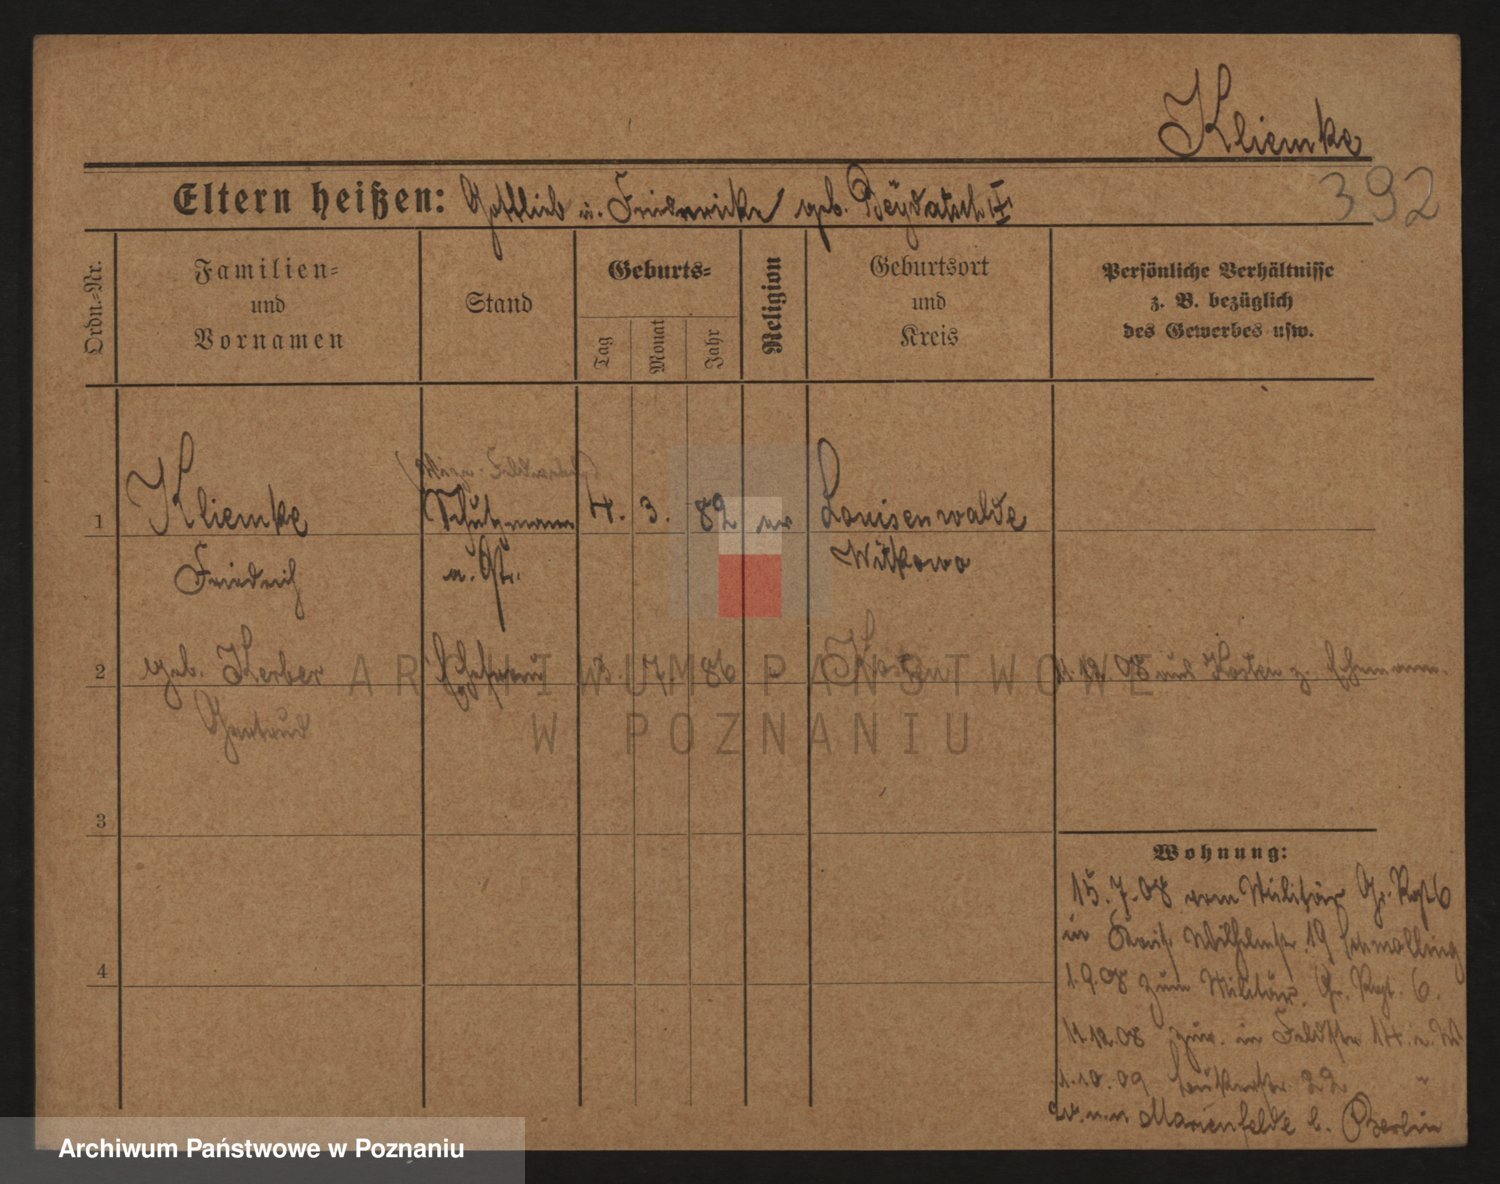 Kliemke
392
Eltern heißen: Gottlieb u. Friedericke geb.
Ordn.-Nr.
Familien-
und
Vornamen
Stand
Geburts-
Tag
Monat
Jahr
Religion
Geburtsort
und
Kreis
Persönliche Verhältnisse
z. B. bezüglich
des Gewerbes usw.
1
Kliemke
Friedrich
Schutzmann
4. 3. 82
ev
Louisenwalde
Witkowo
2
geb. Kerber
Gertrud
Ehefrau
7 86
Kosten
11.12.08 aus Kosten z. Ehemann.
3
4
Wohnung:
15.7.08 vom Militär Gr. Rgt 6
in Wilhelmstr. 19
1.9.08 zum Militär Gr. Rgt. 6.
11.12.08 zur. in Feldstr 14
1.10.09 22
Marienfelde b. Berlin
ARCHIWUM PAŃSTWOWE
W POZNANIU
Archiwum Państwowe w Poznaniu